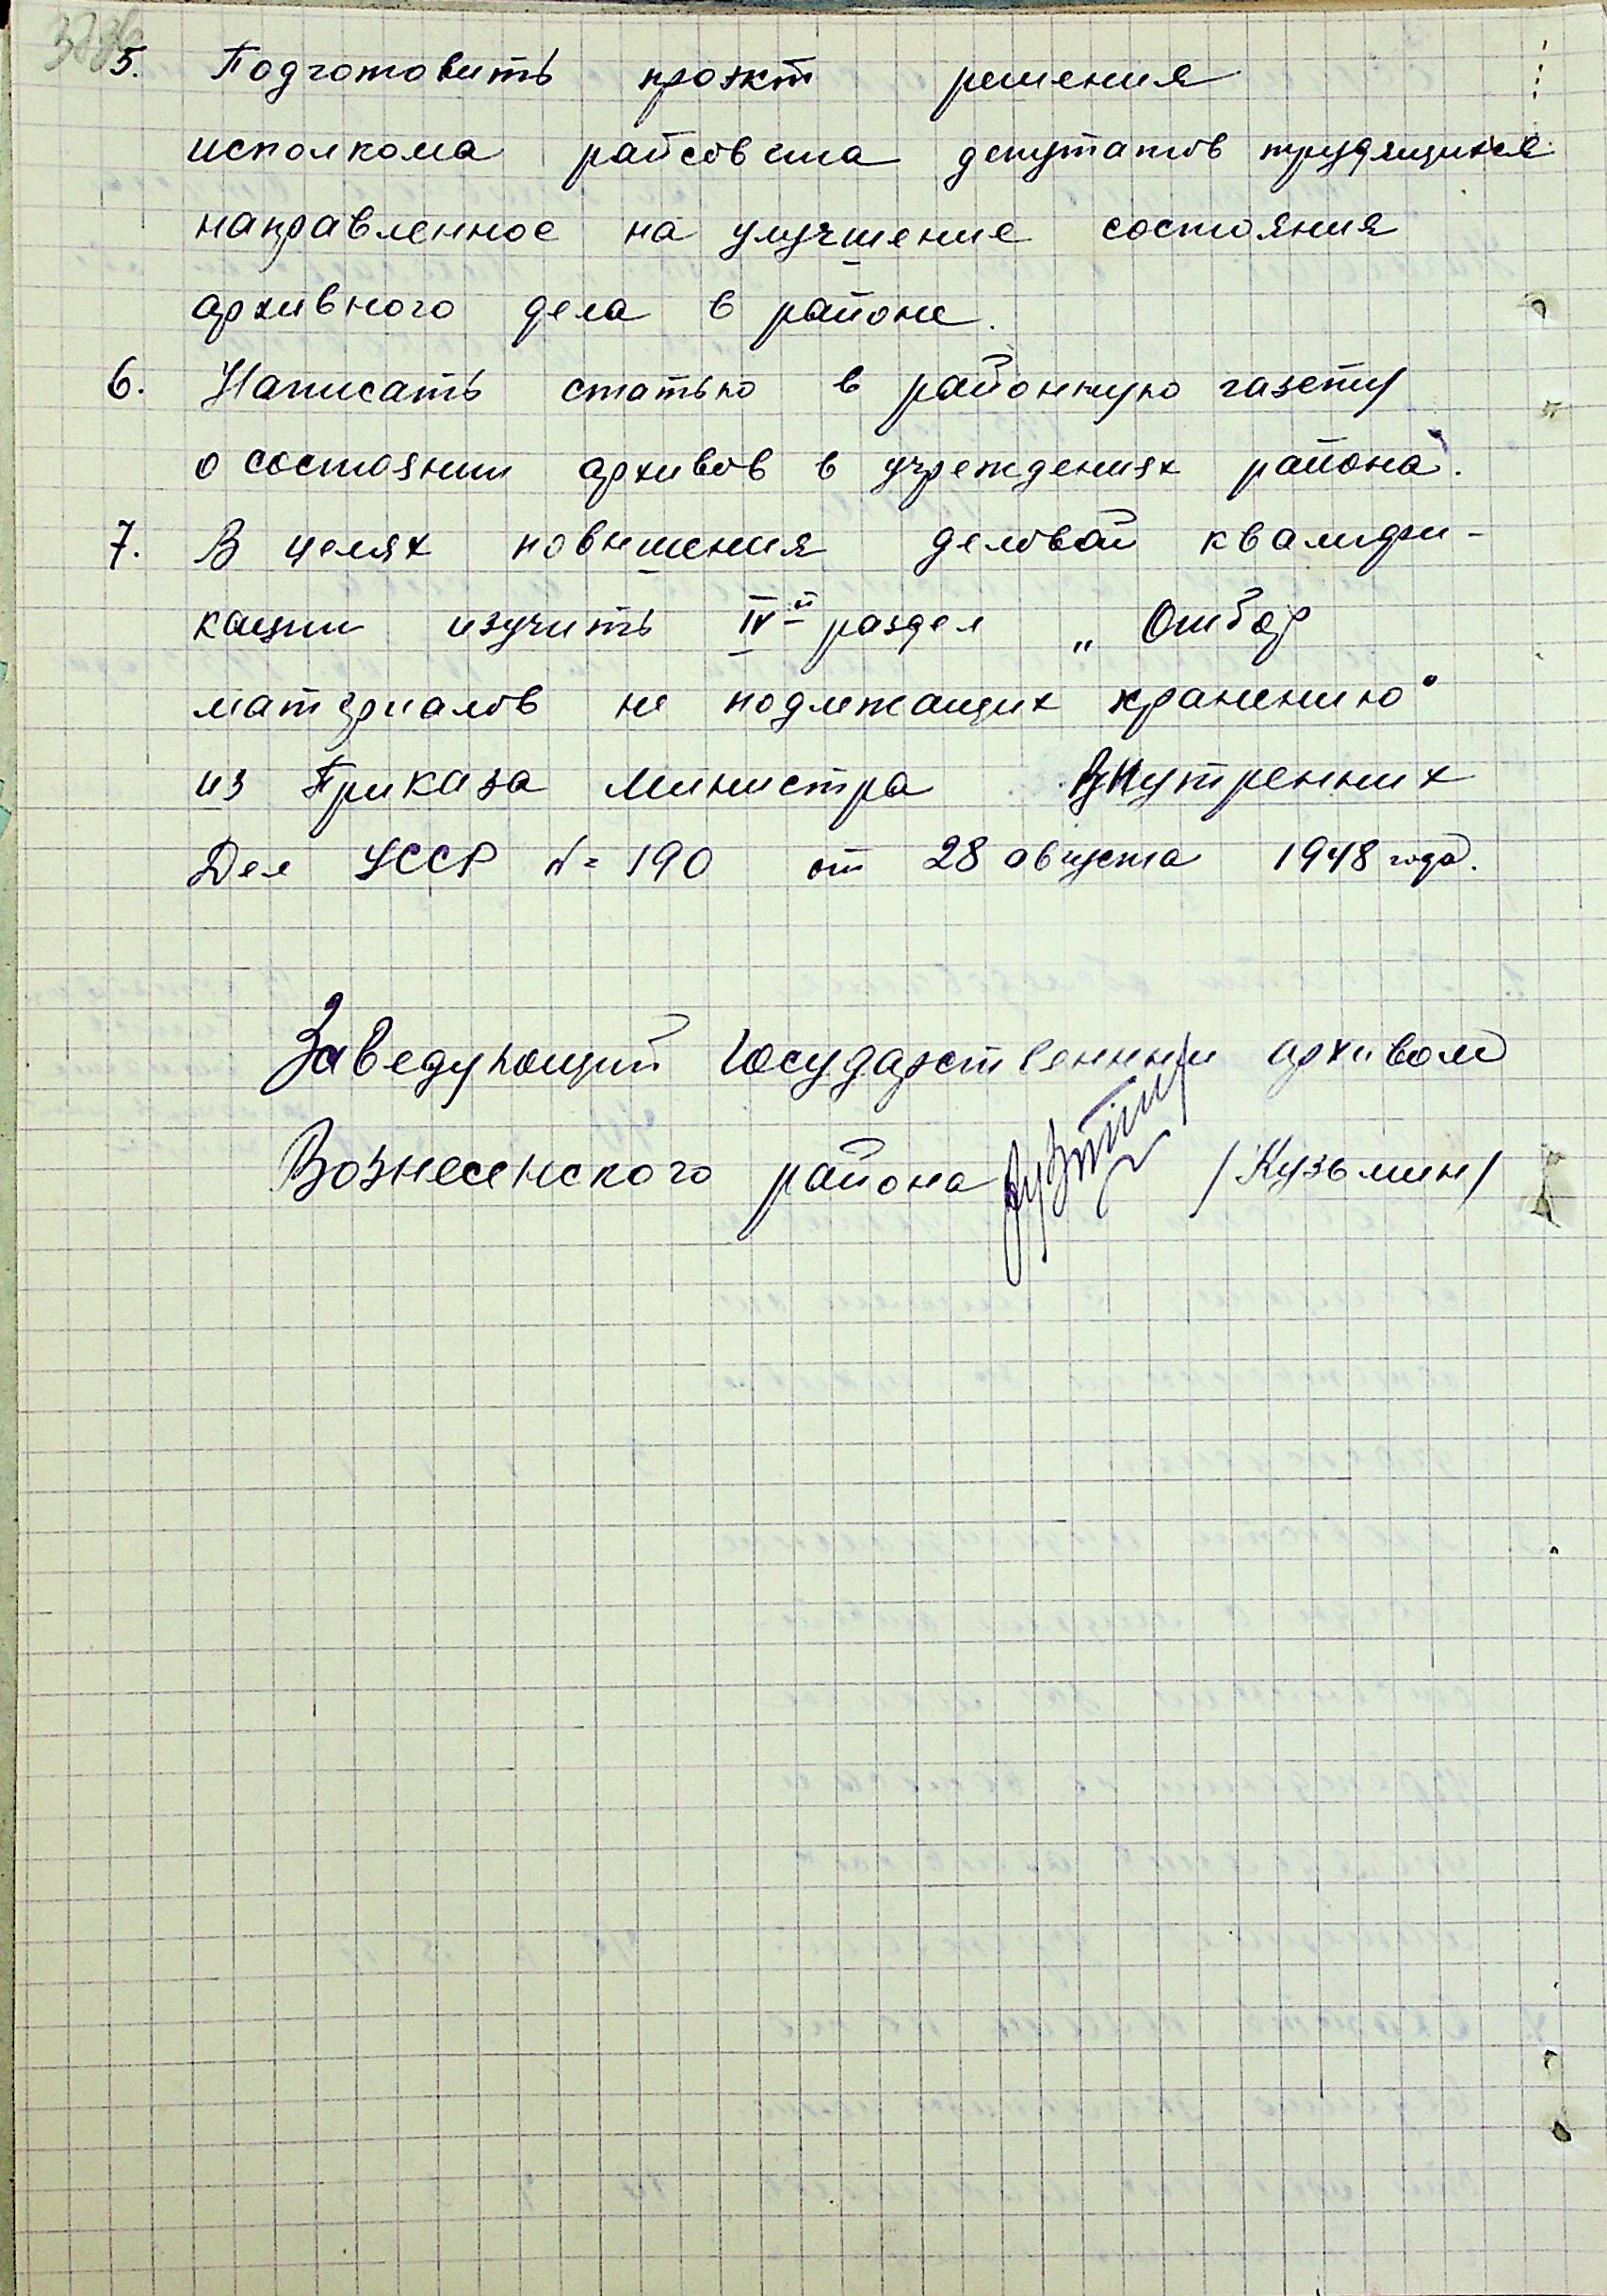 5. Подготовить проэкт решения
исполкома райсовета депутатов трудящихся
направленное на улучшение состояния
архивного дела в районе.
6. Написать статью в районную газету
о состоянии архивов в учреждениях района.
7. В целях повышения деловой квалифи-
кации изучить IV-й раздел „Отбор
материалов не подлежащих хранению"
из Приказа Министра Внутренних
Дел УССР № 190 от 28 августа 1948 года.
Заведующий Государственным архивом
Вознесенского района /Кузьмин/